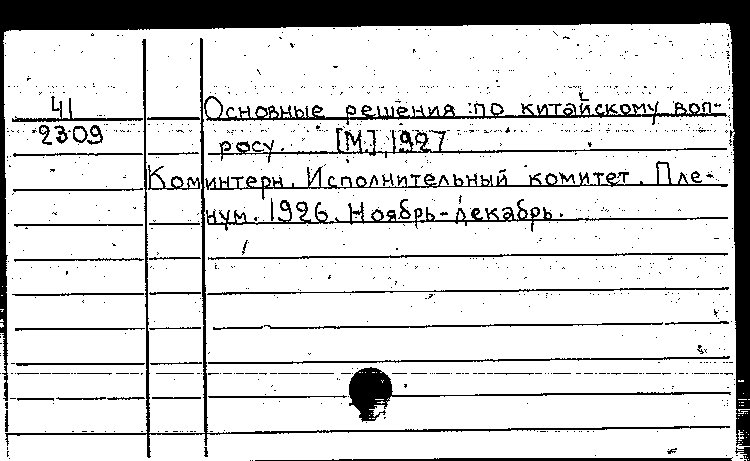 41 Основные решения по китайскому воп-
2309 росу. [М.], 1927
Коминтерн. Исполнительный комитет. Пле-
нум. 1926. Ноябрь-декабрь.